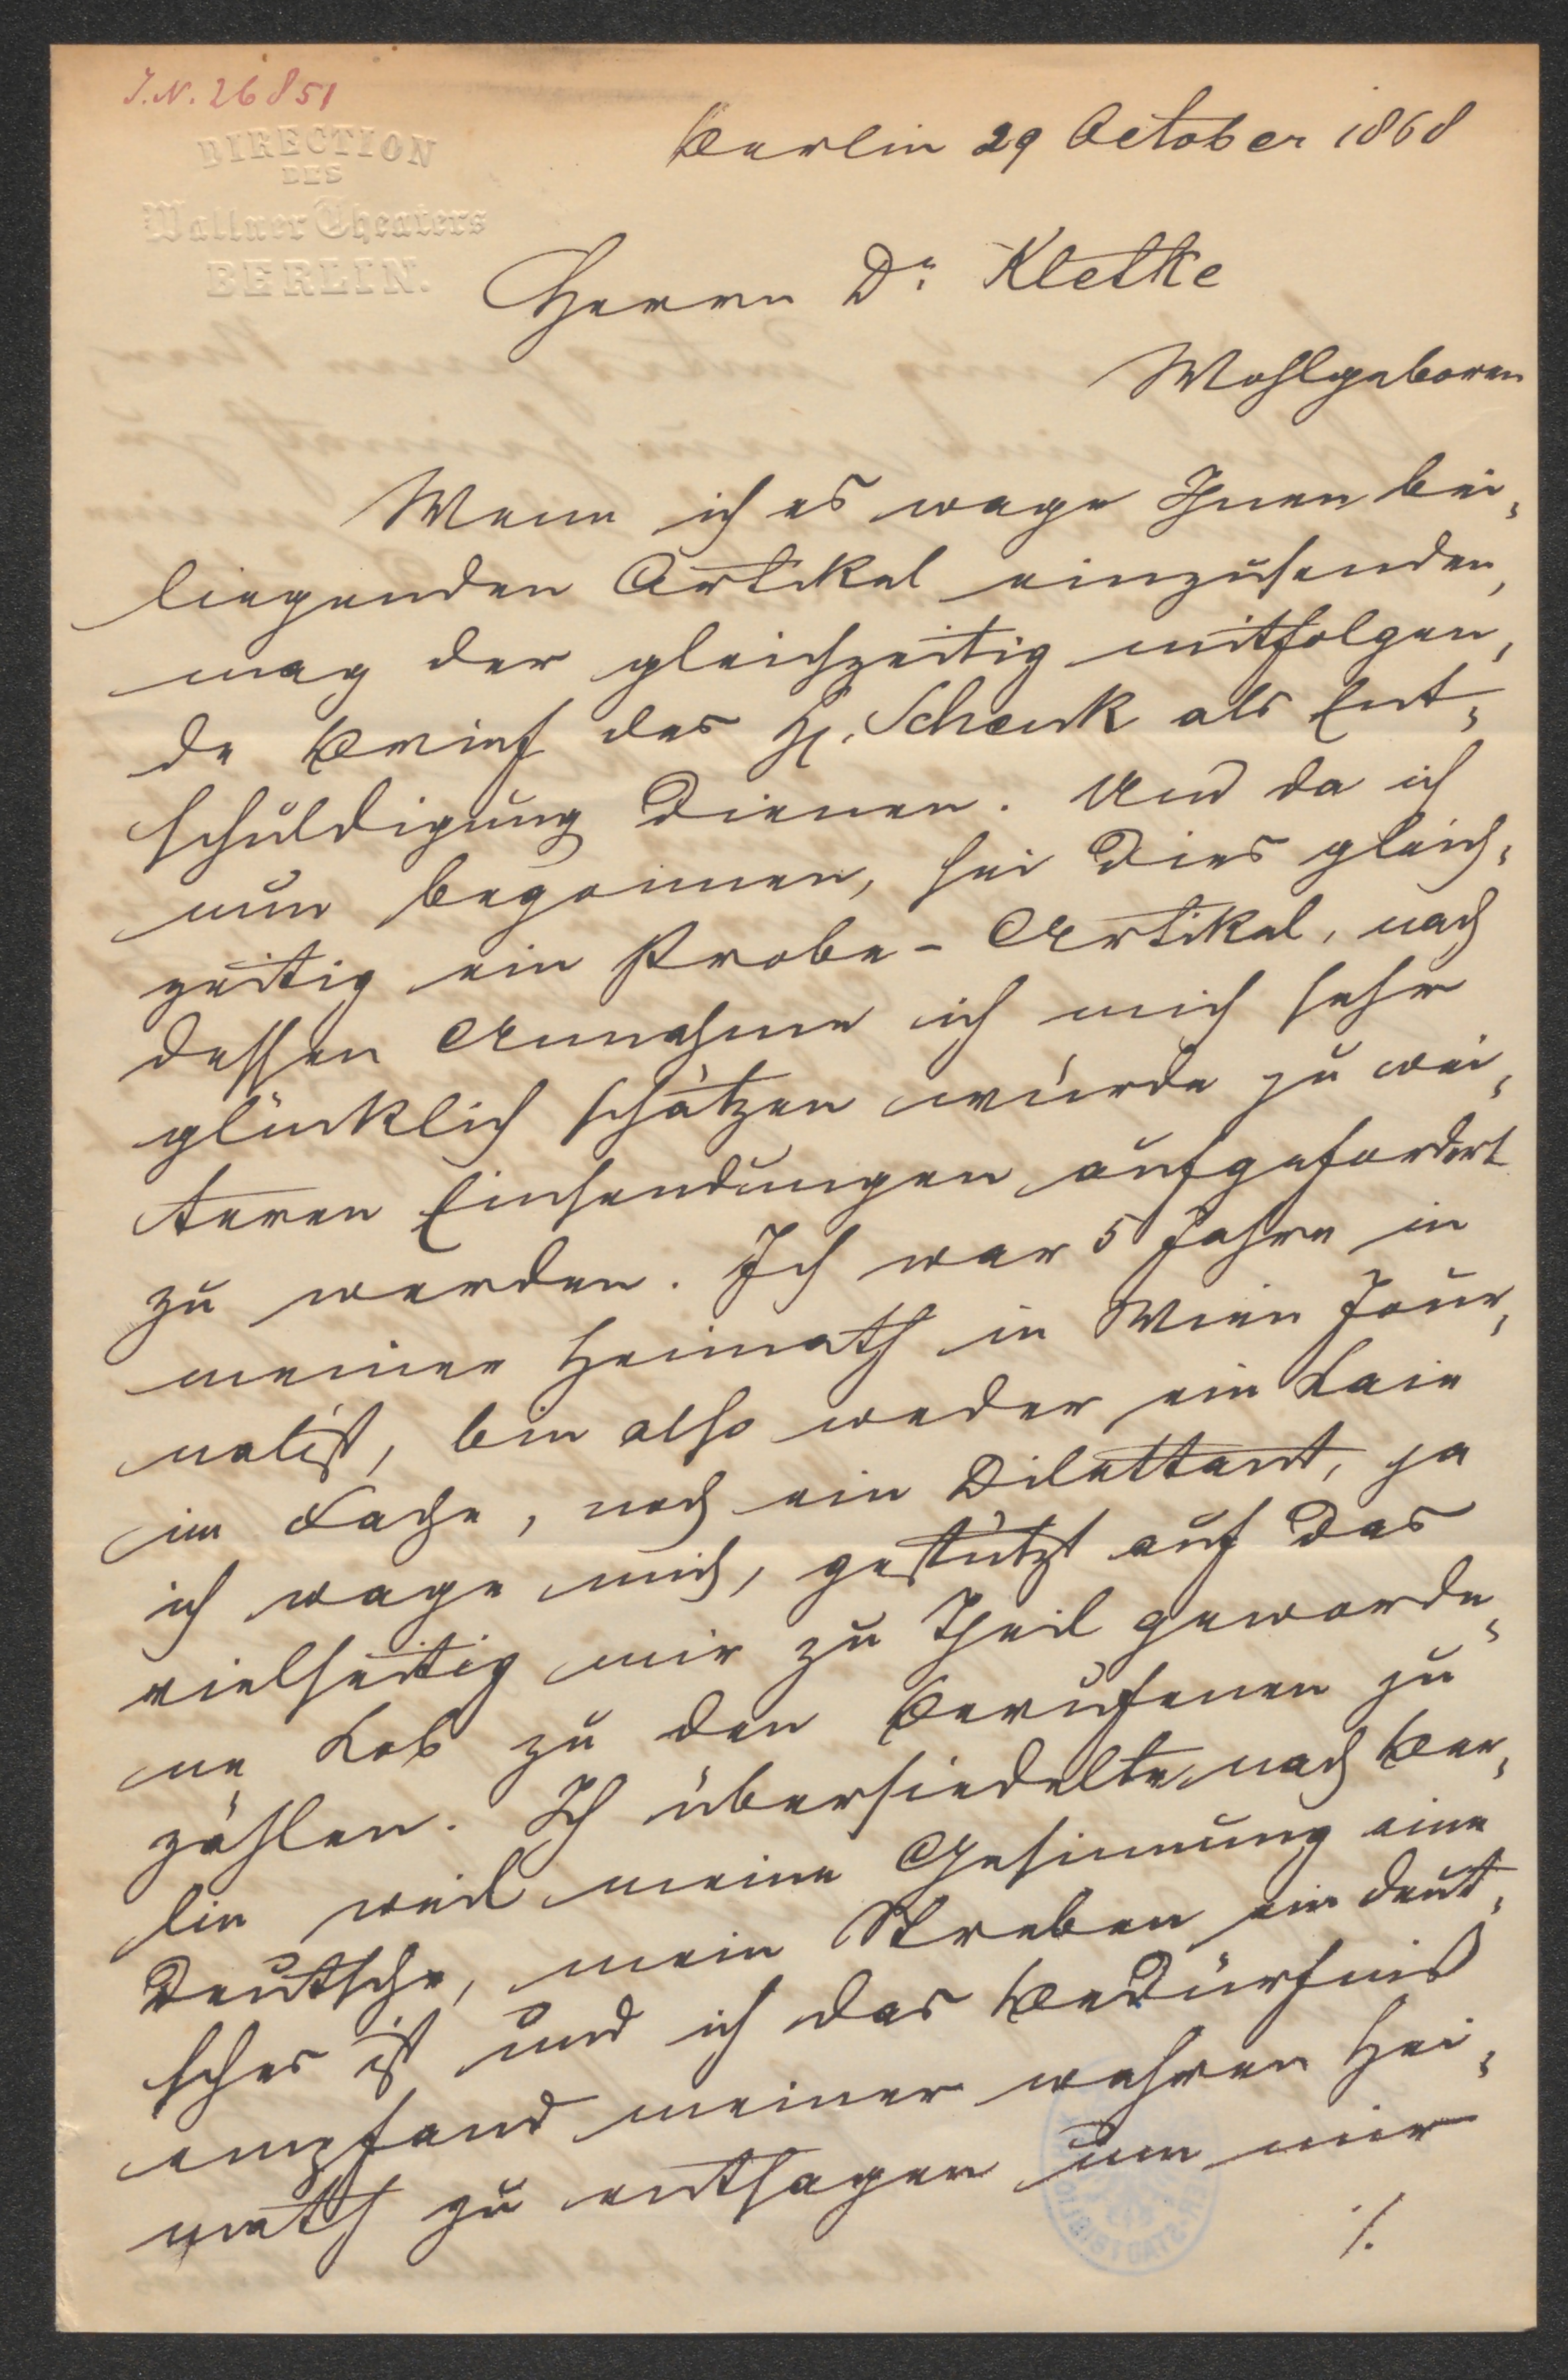 J.N. 26851
DIRECTION
DES
Wallner Theaters
BERLIN.
Berlin 29 October 1868
Herrn Dr. Kletke
Wohlgeboren
Wenn ich es wage Ihnen bei-
liegenden Artikel einzusenden,
mag der gleichzeitig mitfolgen-
de Brief des H. Schenk als Ent-
schuldigung dienen. Und da ich
nun begonnen, sei dies gleich-
zeitig ein Probe-Artikel, nach
dessen Annahme ich mich sehr
glücklich schätzen würde zu wei-
teren Einsendungen aufgefordert
zu werden. Ich war 5 Jahre in
meiner Heimath in Wien Jour-
nalist, bin also weder ein Laie
im Fache, noch ein Dilettant, ja
ich wage mich, gestützt auf das
vielseitig mir zu Theil geworde-
ne Lob zu den Berufenen zu
zählen. Ich übersiedelte nach Ber-
lin weil meine Gesinnung eine
deutsche, mein Streben ein deut-
sches ist und ich das Bedürfniß
empfand meiner wahren Hei-
math zu entsagen um mir
./.